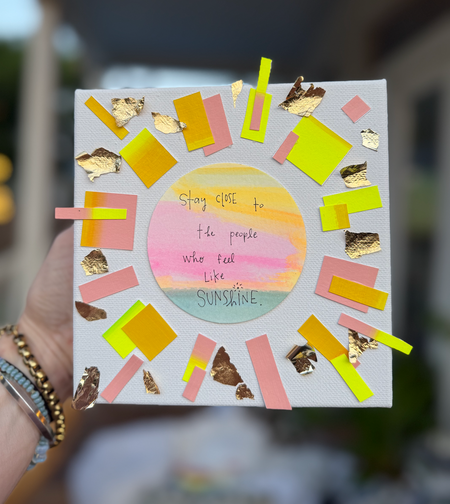 Stay CLOSE to
the people
who feel
Like
SUNShINE.